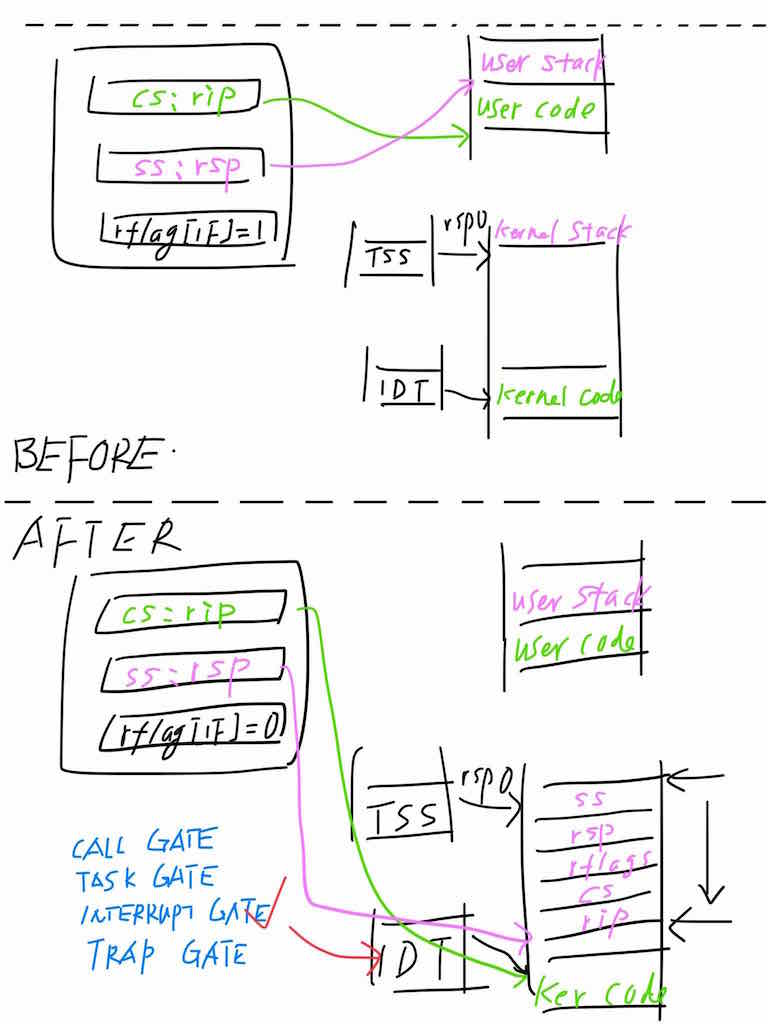 cs: rip
ss: rsp
rflag[IF]=1
user stack
user code
TSS
rsp0
kernel stack
IDT
kernel code
BEFORE.
AFTER
cs: rip
ss: rsp
rflag[IF]=0
user stack
user code
TSS
rsp0
ss
rsp
rflags
cs
rip
CALL GATE
TASK GATE
INTERRUPT GATE
TRAP GATE
IDT
Ker code